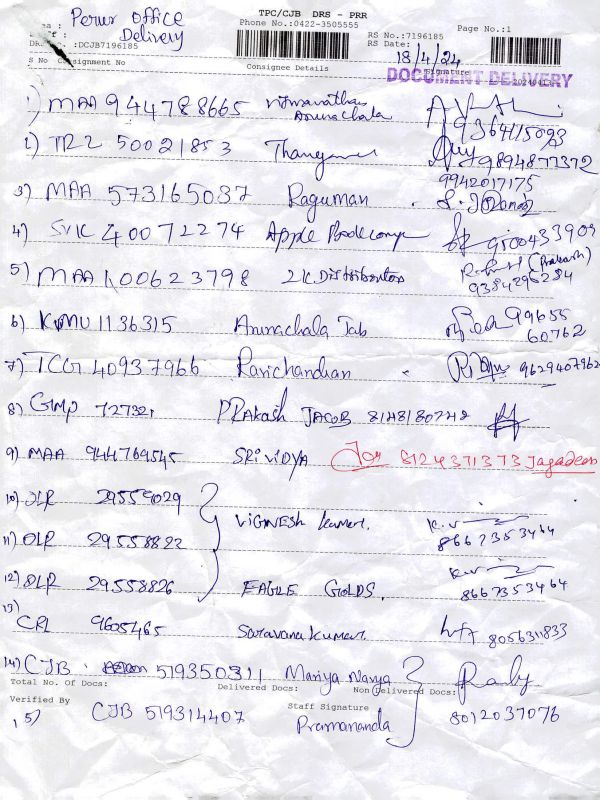 TPC/CJB DRS - PRR
Perur office
Area :
Phone No.:0422-3505555
Page No.:1
Staff : Delivery
RS No.:7196185
DRS No. :DCJB7196185
RS Date: 18/4/24
DOCUMENT DELIVERY
S No Consignment No Consignee Details Signature
1) MAA 944788665 Viswanathan Arunachala 9364115093
2) TRZ 50021853 9894877372
9942017175
3) MAA 573165037 Raguman
4) SVK 40072274 Apple 9500433909
5) MAA 100623798 2K Distributors (Prakash) 9384296284
6) KMU 1136315 Arunachala Tab 99655 60762
7) TCG 40937966 Ravichandran 9629407962
8) GMP 727321 PRakash JACOB 8148180748
9) MAA 944769545 SRIVIDYA 8124371373 Jagadees
10) DLR 29559029
VIGNESH Kumar. K.V 8667353464
11) DLR 29558822
12) DLR 29558826 EAGLE GOLDS. K.V 8667353464
13) CRL 9605465 Saravanakumar. 8056311833
14) CJB 519350311 Mariya Navya
Total No. Of Docs: Delivered Docs: Non Delivered Docs:
Verified By Staff Signature
15) CJB 519314407 Pramananda 8012037076